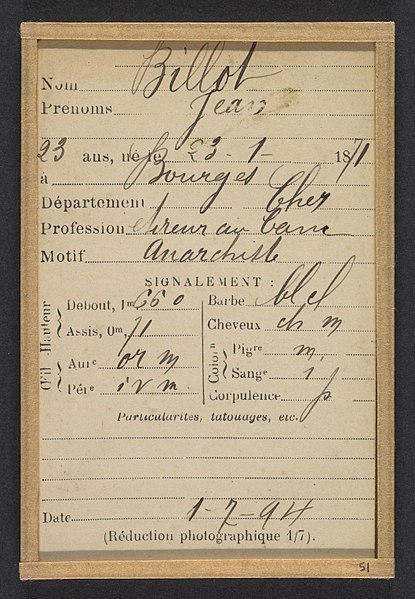 Nom Billot
Prénoms Jean
23 ans, né le 23-1- 1871
à Bourges
Département Cher
Profession au banc
Motif Anarchiste
SIGNALEMENT :
Œil - Hauteur
Debout, 1m 66 0
Assis, 0m, 71
Aure or m
Pére i v m
Barbe bl
Cheveux ch m
Coloron
Pigre m
Sange i
Corpulence p
Particularités, tatouages, etc.
Date 1-7-94
(Réduction photographique 1/7).
51